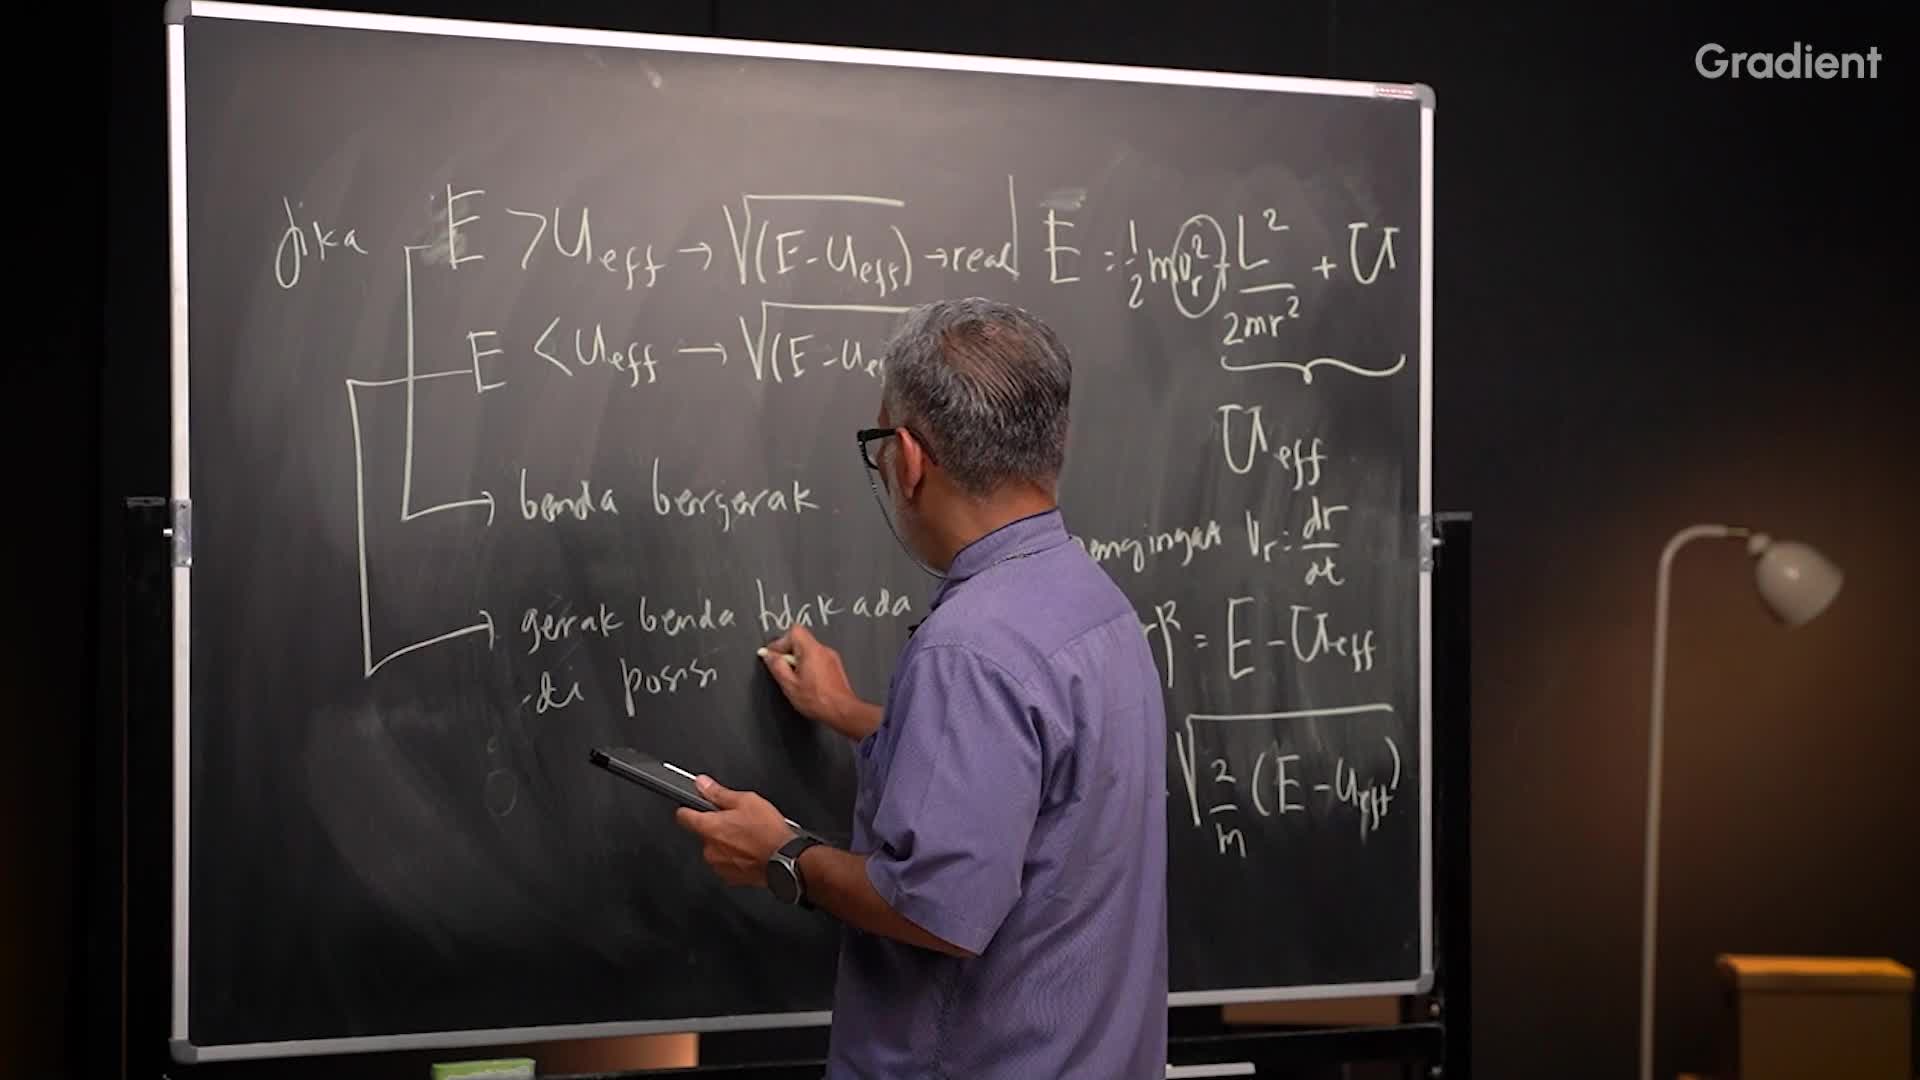 Gradient
Jika E > U_eff → √(E - U_eff) → real
E < U_eff → √(E - U_eff
benda bergerak
gerak benda tidak ada
di posisi
E = 1/2 m v_r^2 + L^2/2mr^2 + U
U_eff
mengingat v_r = dr/dt
= E - U_eff
√(2/m (E - U_eff)